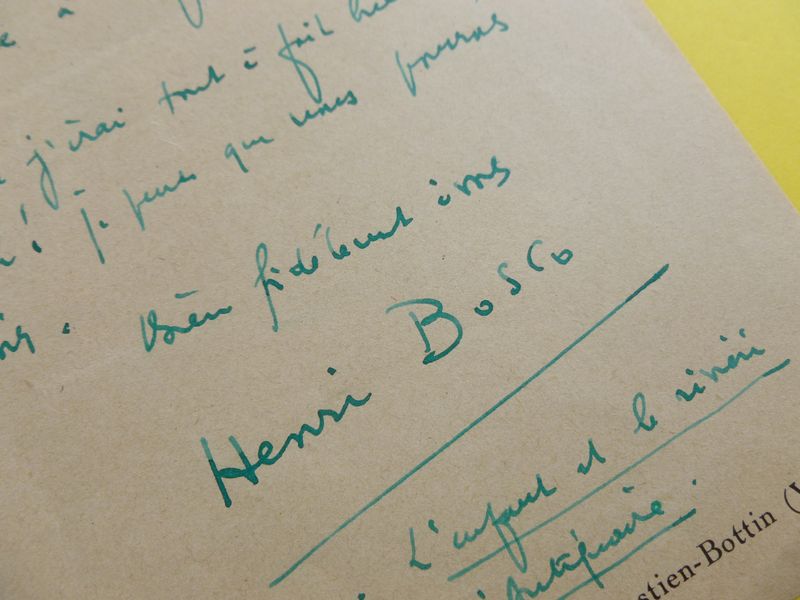 j'irai tout à fait
je pense que vous pourrés
Bien fidèlement à vous
Henri Bosco
L'enfant et la rivière
Antiquaire.
stien-Bottin (V